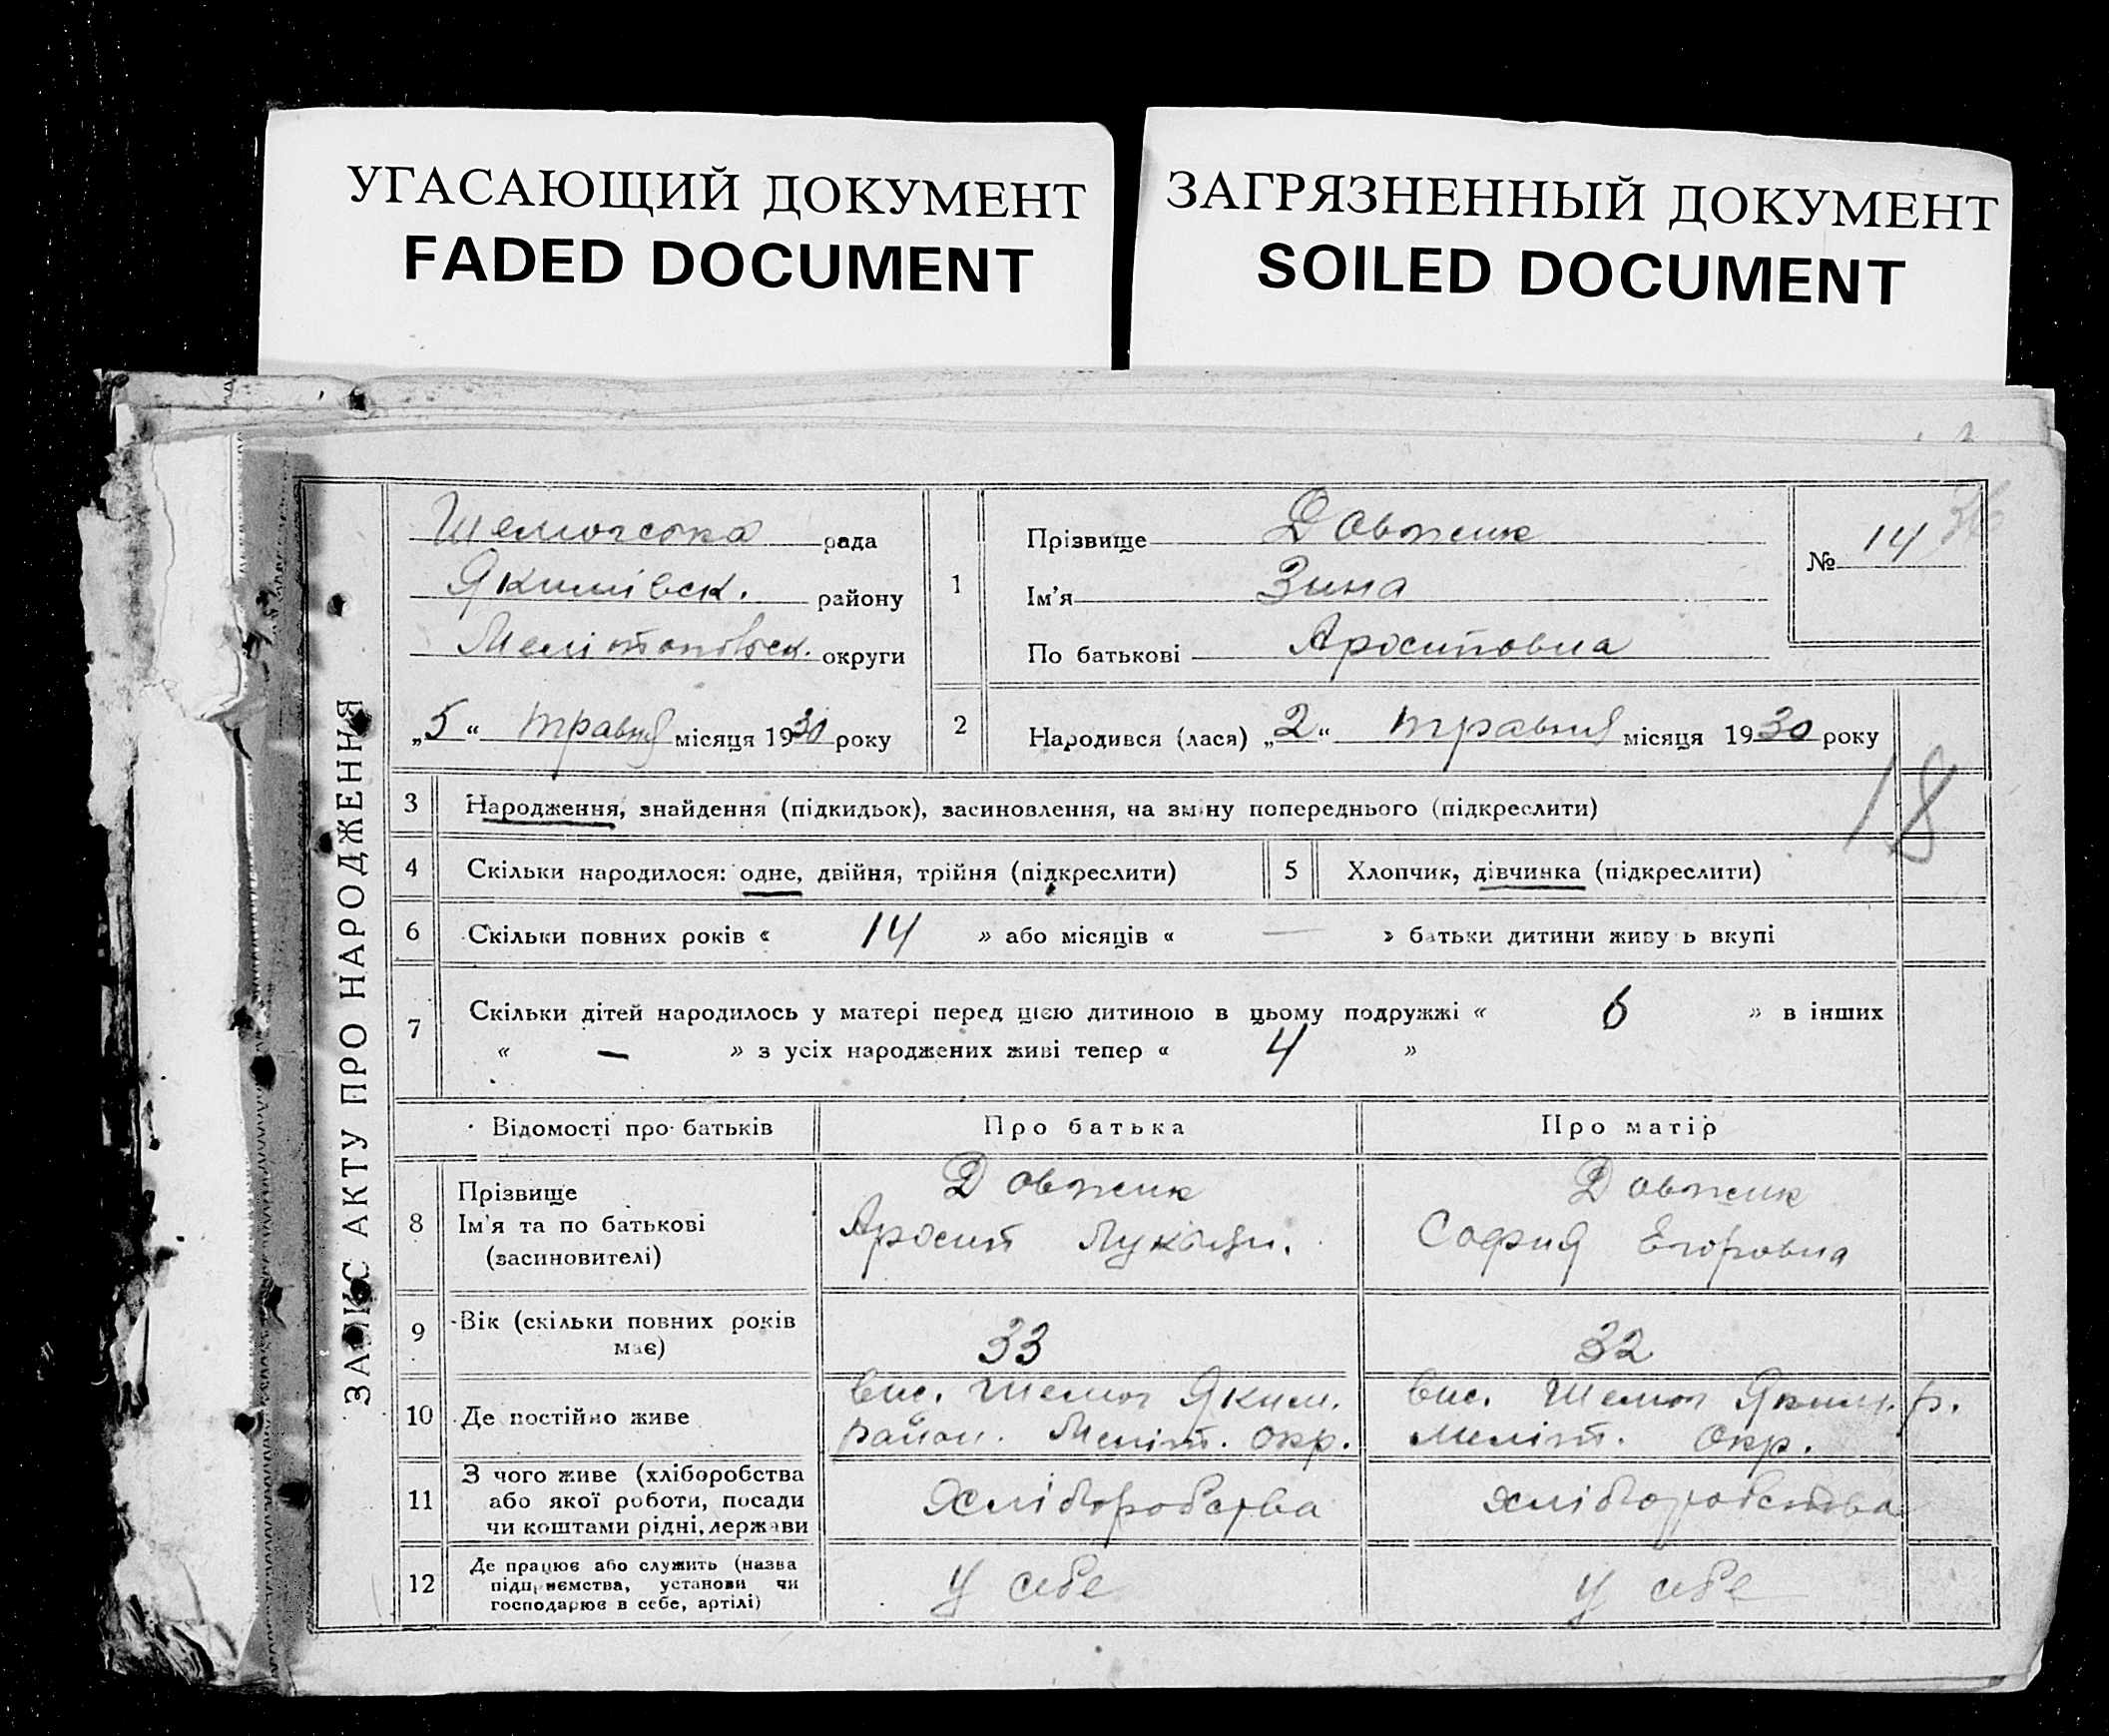 УГАСАЮЩИЙ ДОКУМЕНТ
FADED DOCUMENT
ЗАГРЯЗНЕННЫЙ ДОКУМЕНТ
SOILED DOCUMENT
ЗАПИС АКТУ ПРО НАРОДЖЕННЯ
рада
Якимівськ. району
Мелітопольск. округи
„5“ травня місяця 1930 року
1
Прізвище Довженк
Ім'я Зина
По батькові
№ 14
36
2
Народився (лася) „2“ травня місяця 1930 року
18
3 Народження, знайдення (підкидьок), засиновлення, на зміну попереднього (підкреслити)
4 Скільки народилося: одне, двійня, трійня (підкреслити)
5 Хлопчик, дівчинка (підкреслити)
6 Скільки повних років « 14 » або місяців « — » батьки дитини живуть вкупі
7 Скільки дітей народилось у матері перед цією дитиною в цьому подружжі « 6 » в інших
« – » з усіх народжених живі тепер « 4 »
Відомості про батьків
Про батька
Про матір
8
Прізвище
Ім'я та по батькові
(засиновителі)
Довженк
Довженк
София Егоровна
9
Вік (скільки повних років
має)
33
32
10 Де постійно живе
вис. Шемот Яким.
район. Меліт. Окр.
вис. Шемот Яким. р.
Меліт. Окр.
11
З чого живе (хліборобства
або якої роботи, посади
чи коштами рідні, держави
хліборобства
хліборобства
12
Де працює або служить (назва
підприємства, установи чи
господарює в себе, артілі)
У себе
У себе